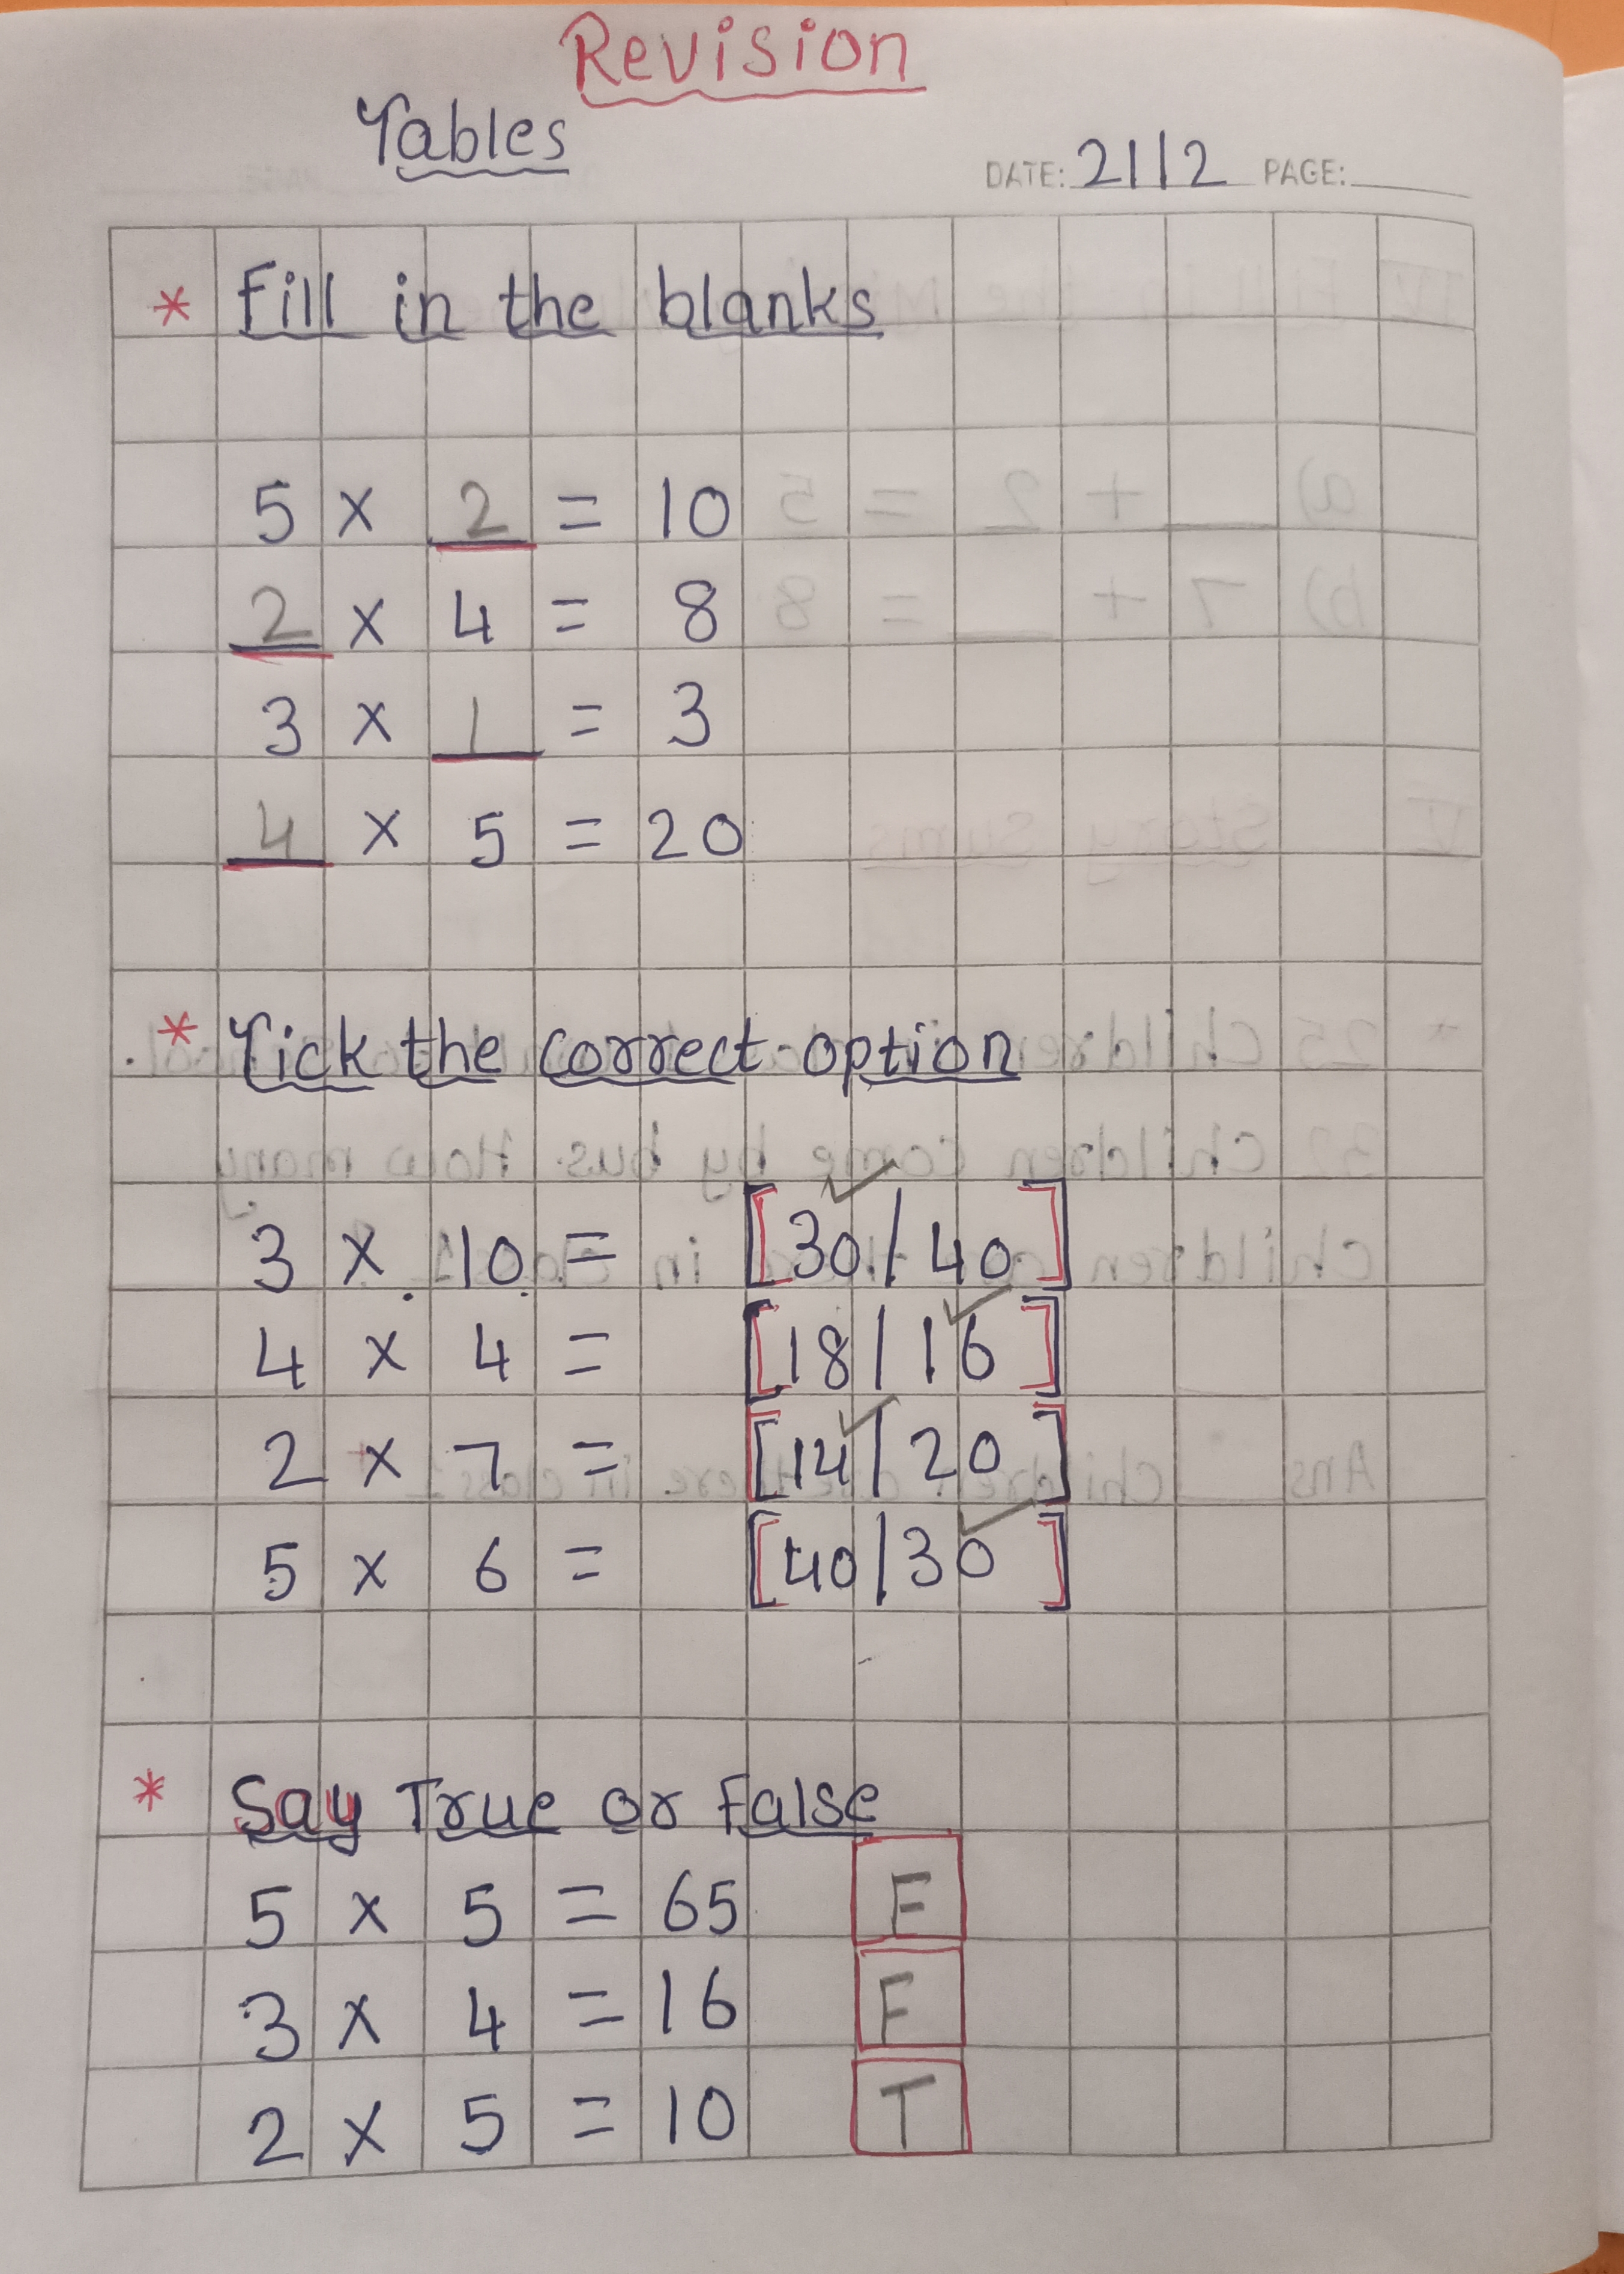 Revision
Tables
DATE: 21/12 PAGE:
* Fill in the blanks
5 × 2 = 10
2 × 4 = 8
3 × 1 = 3
4 × 5 = 20
* Tick the correct option
3 × 10 = [30/40]
4 × 4 = [18/16]
2 × 7 = [14/20]
5 × 6 = [40/30]
* Say True or False
5 × 5 = 65 F
3 × 4 = 16 F
2 × 5 = 10 T